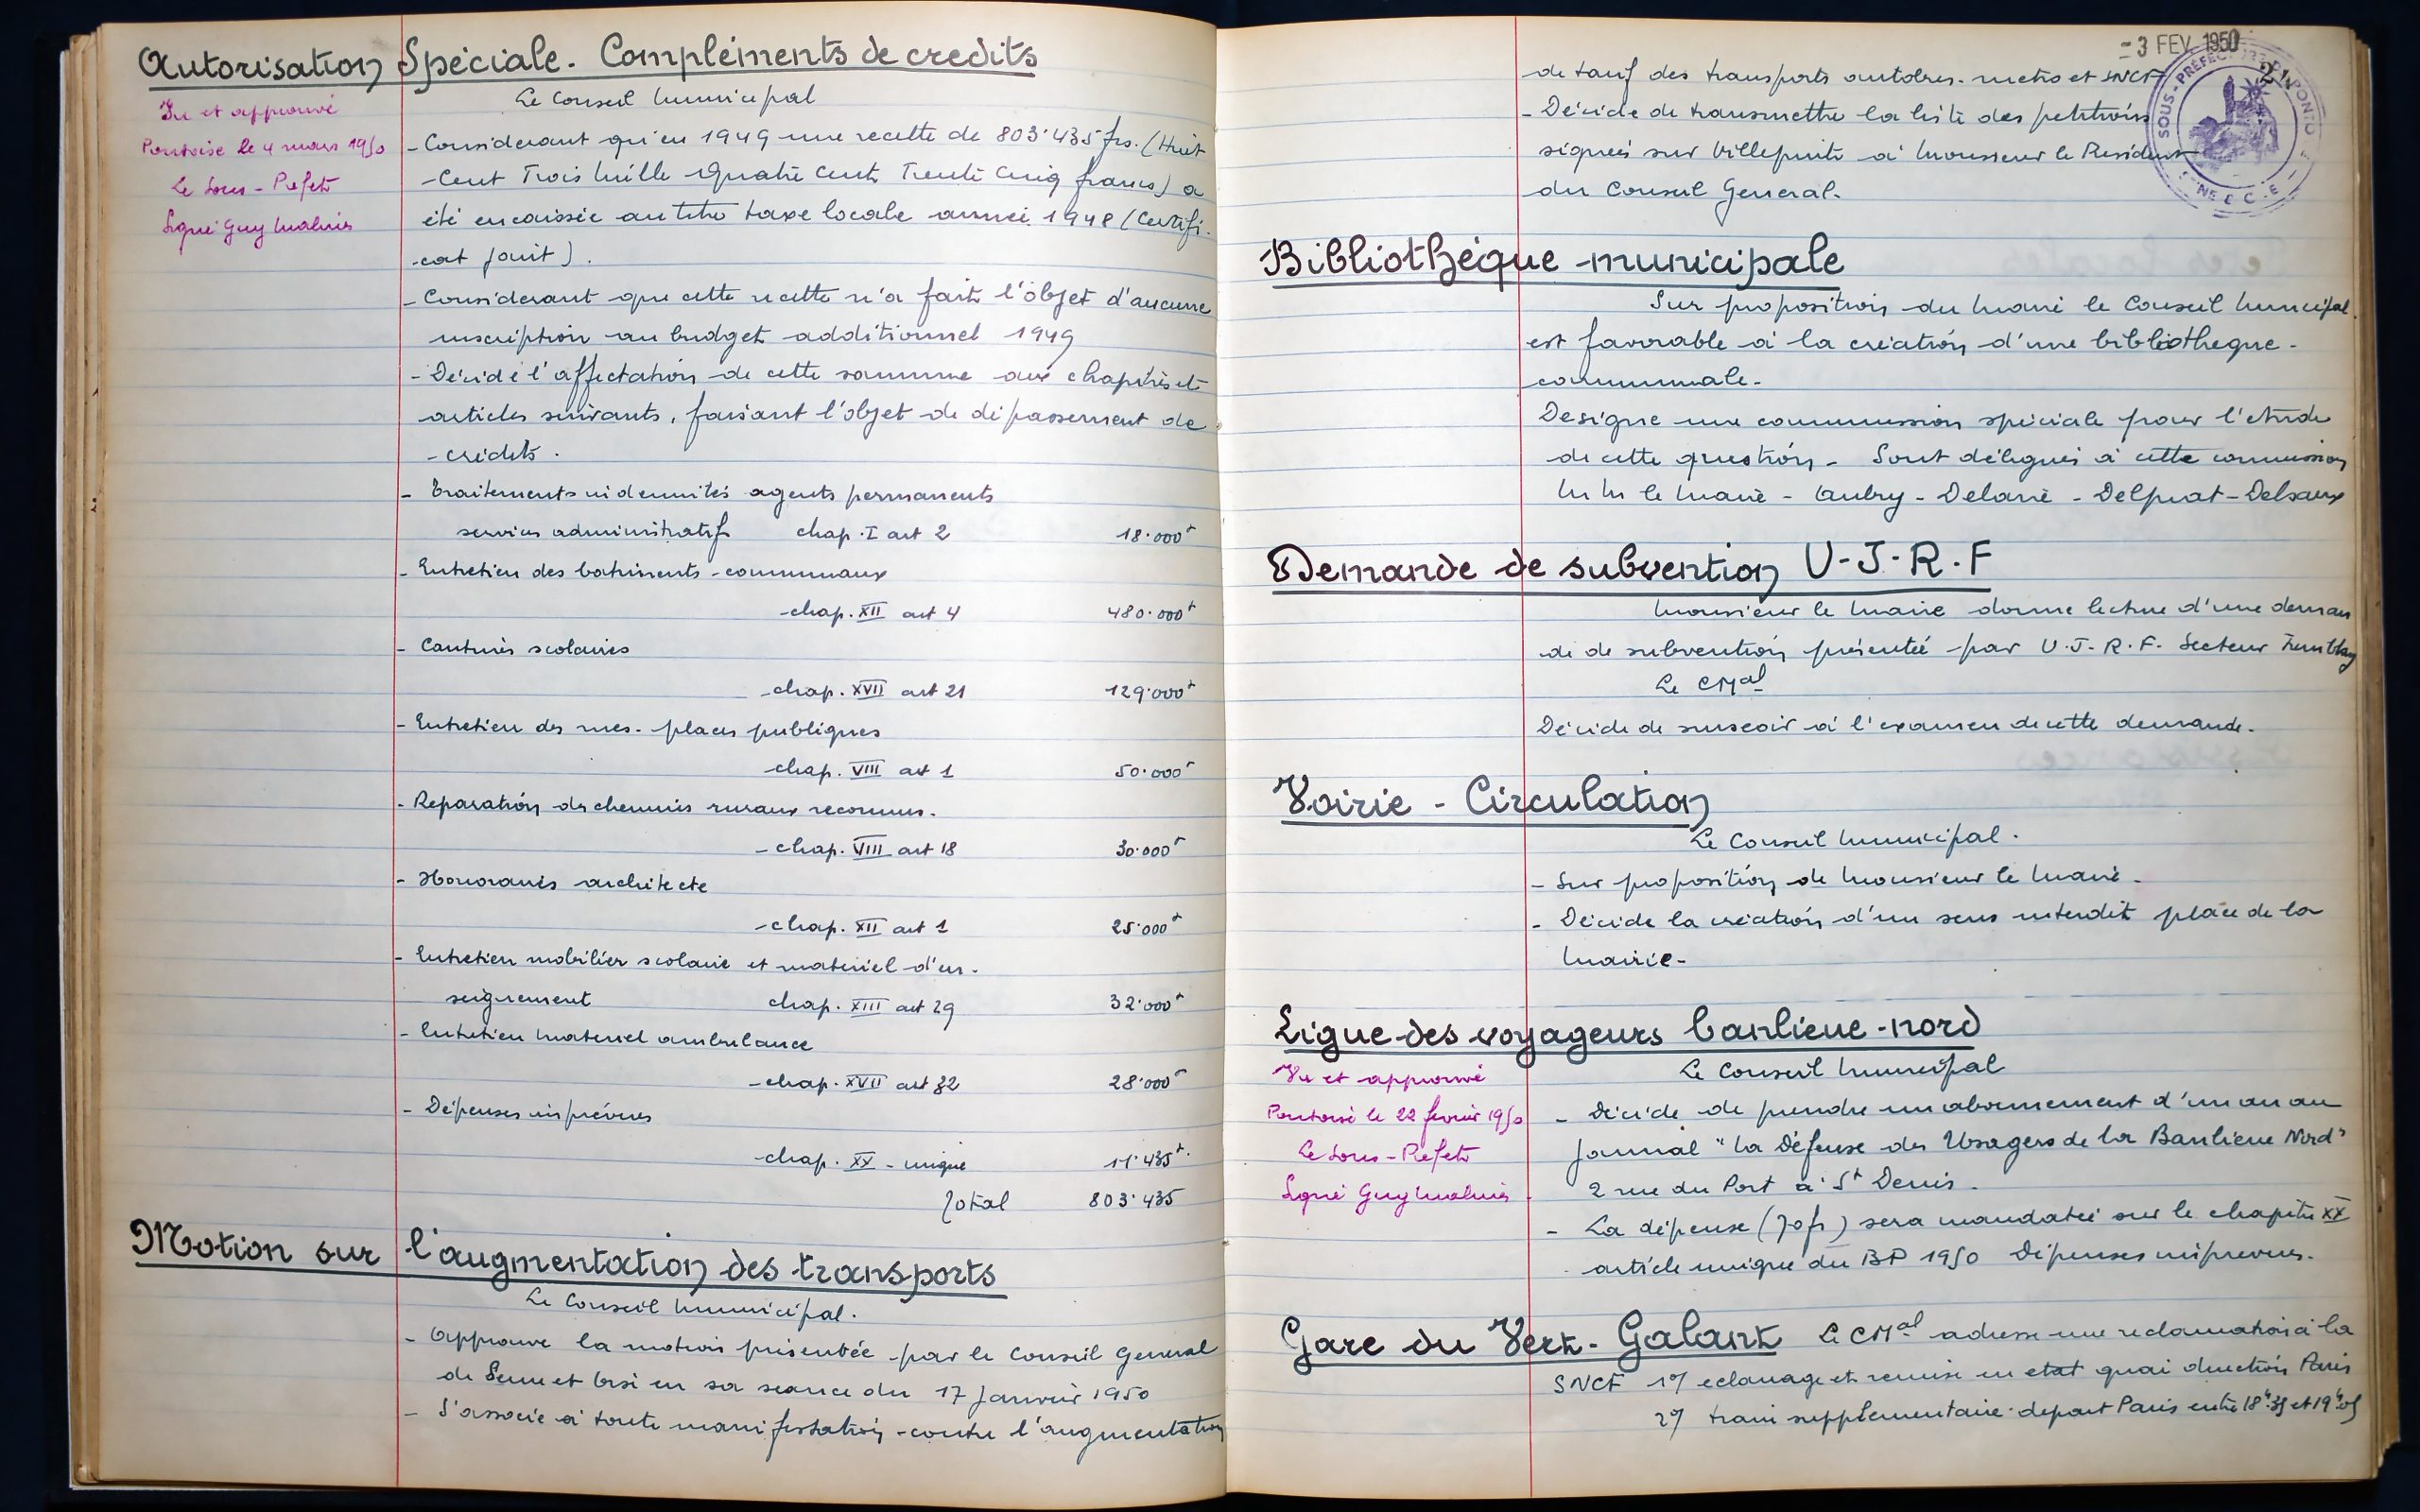 Autorisation Spéciale. Compléments de credits
Vu et approuvé
Pontoise le 4 mars 1950
Le Sous-Prefet
Signé Guy
Le Conseil Municipal
- Considerant qu'en 1949 une recette de 803.435 frs. (Huit
Cent Trois Mille Quatre Cent Trente Cinq francs) a
été encaissée au titre taxe locale année 1948 (Certifi-
cat joint).
- Considerant que cette recette n'a fait l'objet d'aucune
inscription au budget additionnel 1949
- Décide l'affectation de cette somme aux chapitres et
articles suivants, faisant l'objet de dépassement de
crédits.
- Traitements indemnités agents permanents
services administratifs chap. I art 2 18.000 f
- Entretien des batiments communaux
chap. XII art 4 480.000 f
- Cantines scolaires
chap. XVII art 21 129.000 f
- Entretien des rues. places publiques
chap. VIII art 1 50.000 f
- Reparation des chemins ruraux reconnus.
chap. VIII art 18 30.000 f
- Honoraires architecte
chap. XII art 1 25.000 f
- Entretien mobilier scolaire et matériel d'en-
seignement chap. XIII art 29 32.000 f
- Entretien materiel ambulance
chap. XVII art 32 28.000 f
- Dépenses imprévues
chap. XX - unique 11.435 f.
Total 803.435
Motion sur l'augmentation des transports
Le Conseil Municipal.
- Approuve la motion présentée par le Conseil General
de Seine et Oise en sa seance du 17 Janvier 1950
- S'associe à toute manifestation contre l'augmentation
= 3 FEV. 1950
SOUS-PRÉFECTURE DE PONTOISE
de tarif des transports autobus. metro et SNCF
- Décide de transmettre la liste des petitions
signées sur Villepinte à Monsieur le President
du Conseil General.
Bibliothèque municipale
Sur proposition du Maire le Conseil Municipal.
est favorable à la création d'une bibliotheque
communale.
Designe une commission spéciale pour l'etude
de cette question. Sont délégués à cette commission
MM le Maire - Aubry - Delarie - Delprat - Delsaux
Demande de subvention U.J.R.F
Monsieur le Maire donne lecture d'une deman
de de subvention présentée par U.J.R.F. Secteur Tremblay
Le CMal
Décide de surseoir à l'examen de cette demande.
Voirie - Circulation
Le Conseil Municipal.
- Sur proposition de Monsieur le Maire.
- Décide la création d'un sens interdit place de la
Mairie.
Ligue des voyageurs banlieue-nord
Vu et approuvé
Pontoise le 22 fevrier 1950
Le Sous-Prefet
Signé Guy
Le Conseil Municipal
- Décide de prendre un abonnement d'un an au
Journal "la Défense des Usagers de la Banlieue Nord"
2 rue du Port à St Denis.
- La dépense (70 fs) sera mandatée sur le chapitre XX
article unique du BP 1950 Dépenses imprevues.
Gare du Vert-Galant Le CMal adresse une reclamation à la
SNCF 1°/ eclairage et remise en etat quai direction Paris
2°/ train supplementaire depart Paris entre 18h35 et 19h05